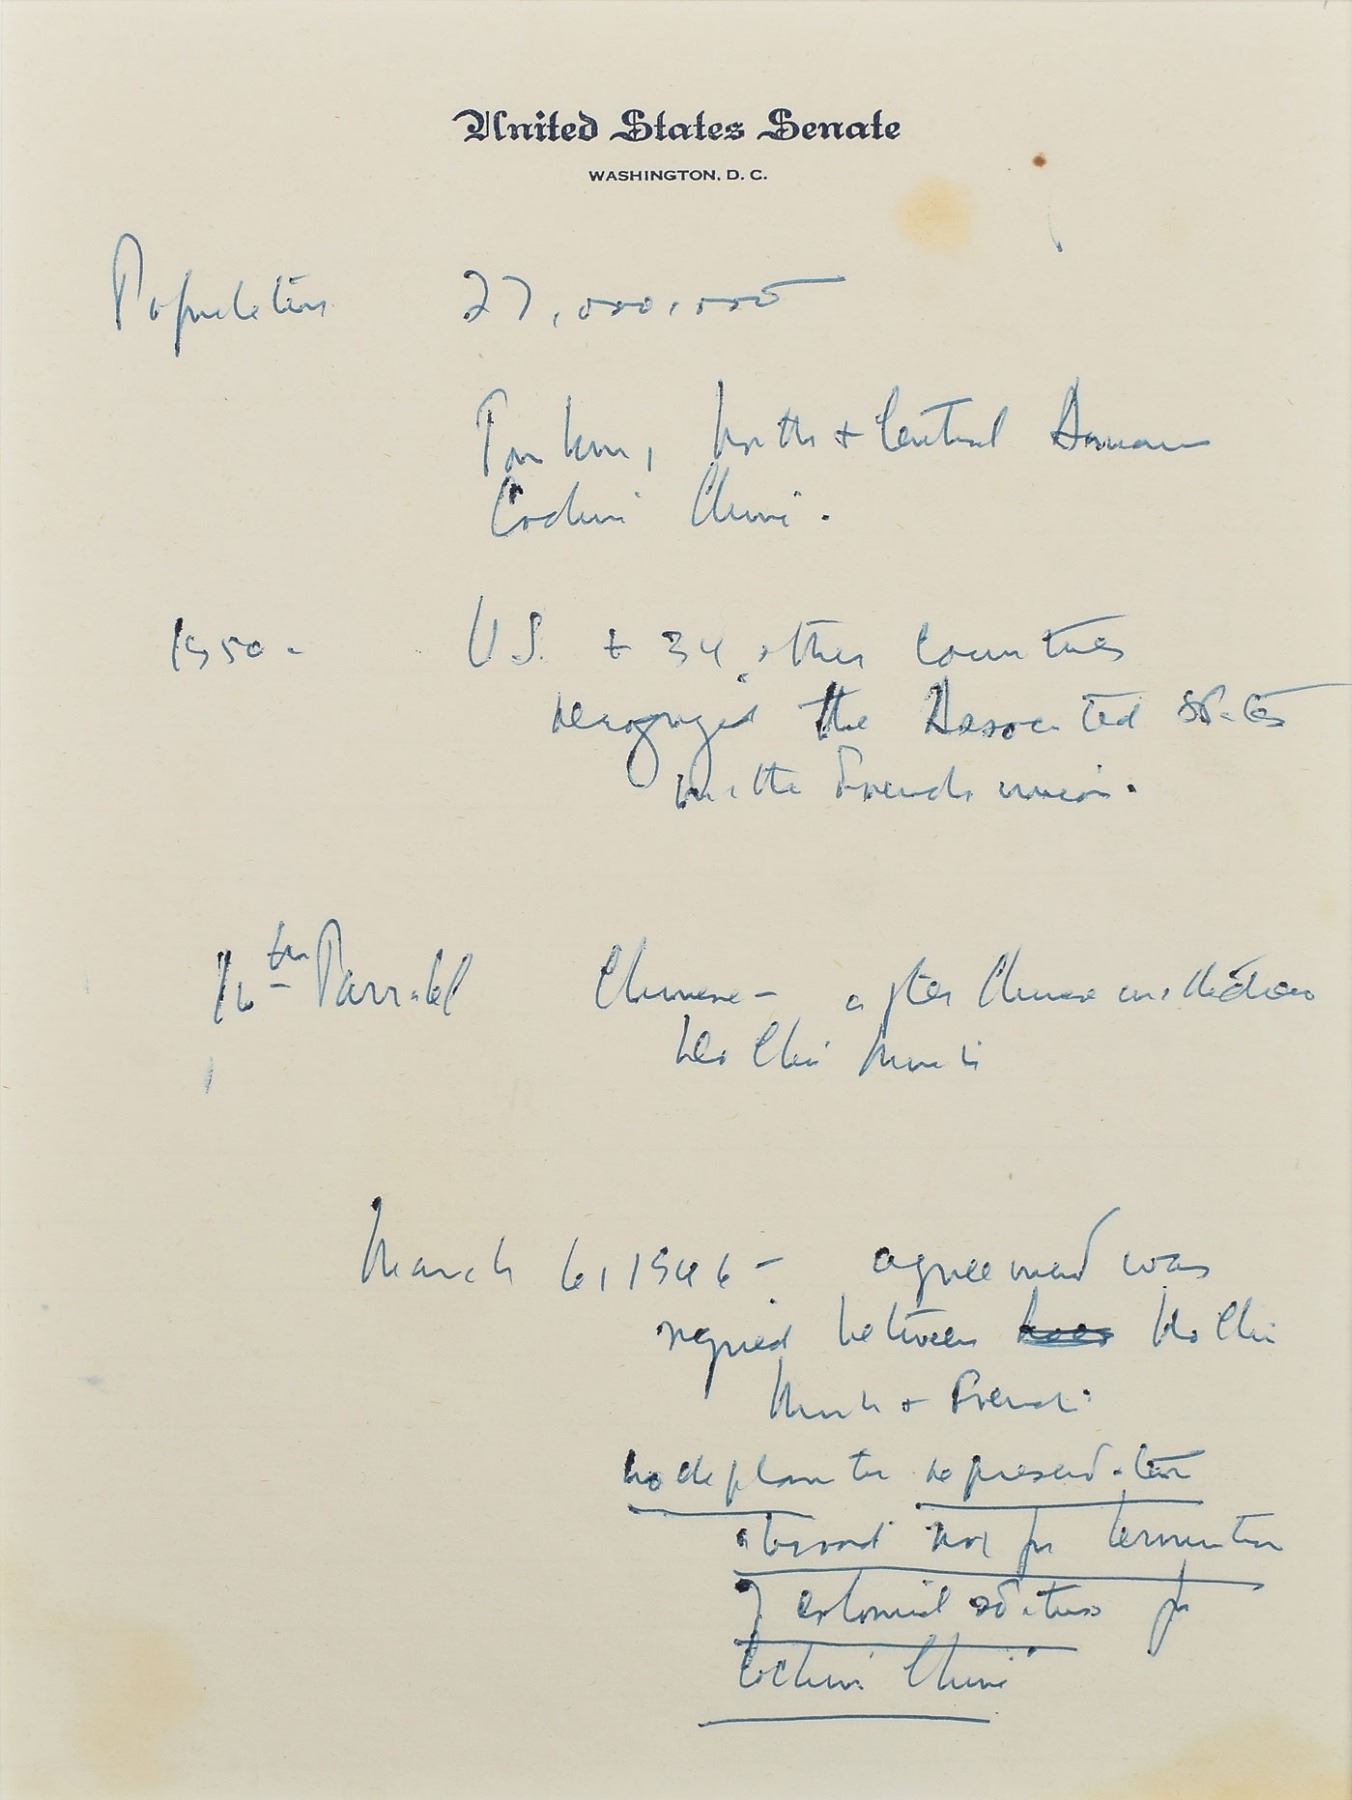 United States Senate
WASHINGTON, D. C.
Population 27,000,000
Tonkin, North + Central Annam
Cochin China.
1950 - U.S. + 34 other countries
recognized the Associated States
in the French union.
16th Parralel Chinese - after Chinese
Ho Chi Minh
March 6, 1946 - agreement was
signed between Ho Chi
Minh + French
no diplomatic representation
abroad nor for termination
of colonial status for
Cochin China